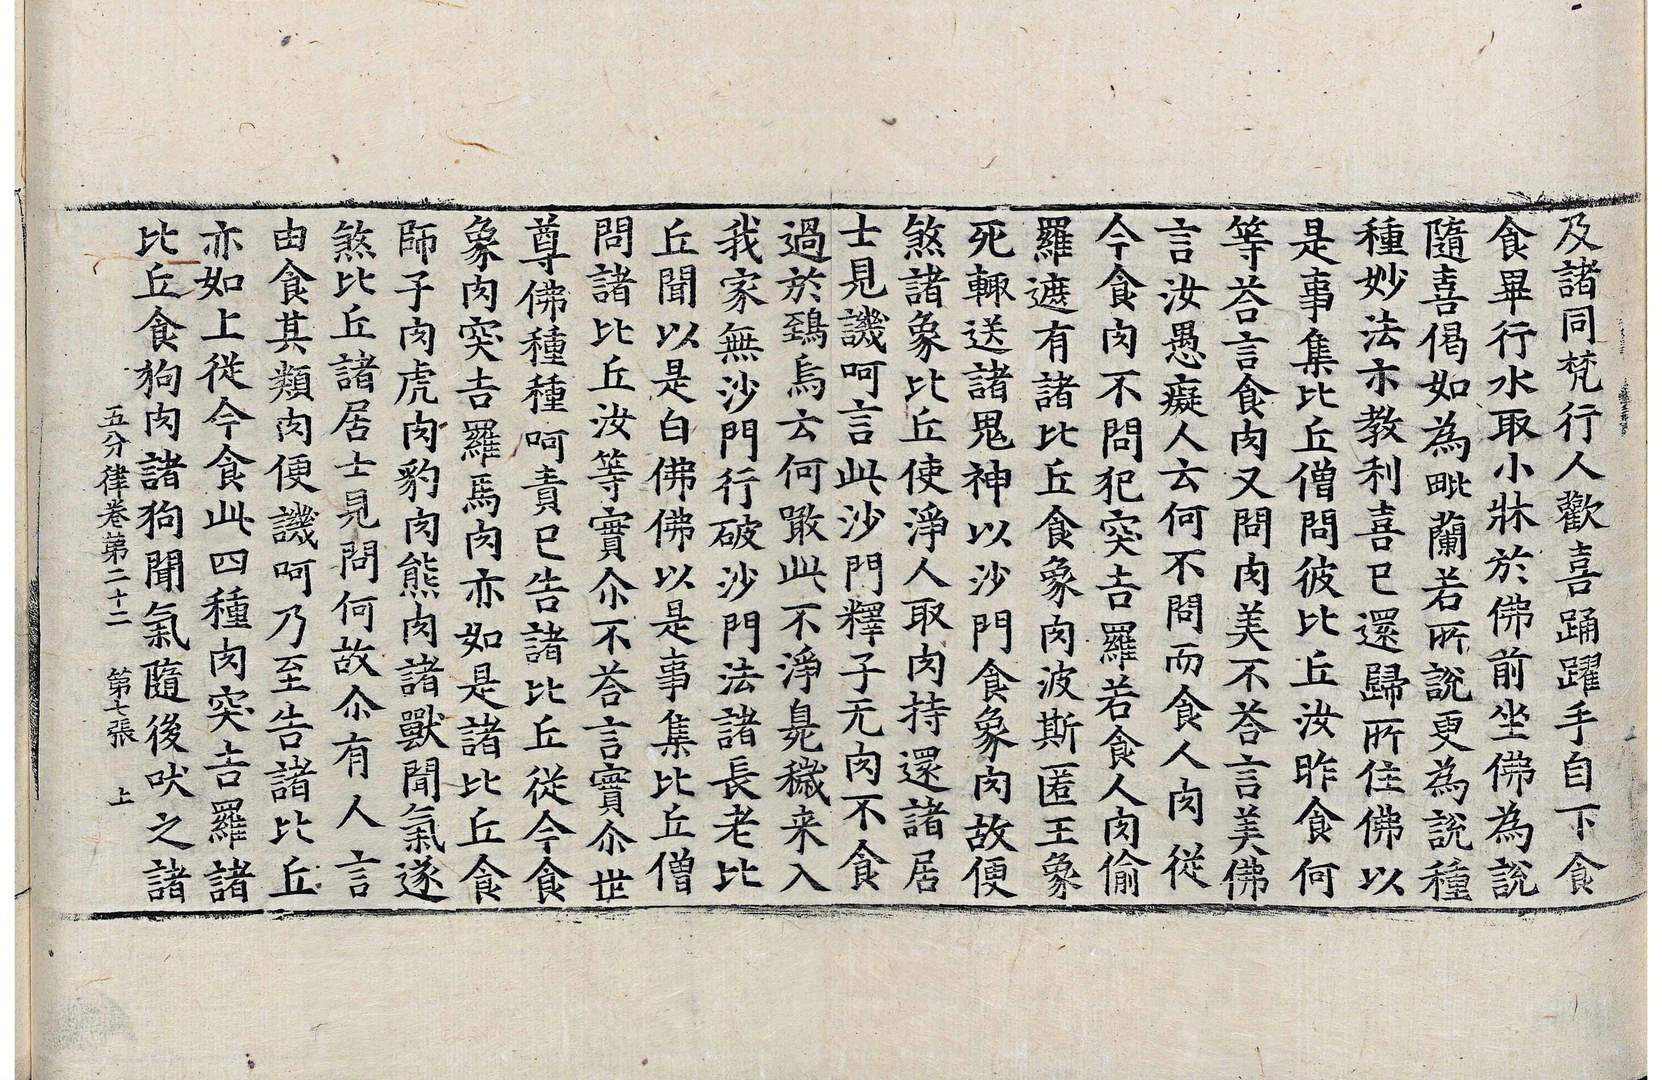 及諸同梵行人歡喜踊躍手自下食
食畢行水取小牀於佛前坐佛為說
隨喜偈如為毗蘭若所說更為說種
種妙法示教利喜已還歸所住佛以
是事集比丘僧問彼比丘汝昨食何
等荅言食肉又問肉美不荅言美佛
言汝愚癡人云何不問而食人肉從
今食肉不問犯突吉羅若食人肉偷
羅遮有諸比丘食象肉波斯匿王象
死輙送諸鬼神以沙門食象肉故便
煞諸象比丘使淨人取肉持還諸居
士見譏呵言此沙門釋子无肉不食
過於鵄烏云何噉此不淨臭穢来入
我家無沙門行破沙門法諸長老比
丘聞以是白佛佛以是事集比丘僧
問諸比丘汝等實尒不荅言實尒世
尊佛種種呵責已告諸比丘從今食
象肉突吉羅馬肉亦如是諸比丘食
師子肉虎肉豹肉熊肉諸獸聞氣遂
煞比丘諸居士見問何故尒有人言
由食其類肉便譏呵乃至告諸比丘
亦如上從今食此四種肉突吉羅諸
比丘食狗肉諸狗聞氣隨後吠之諸
五分律卷第二十二 第七張 上